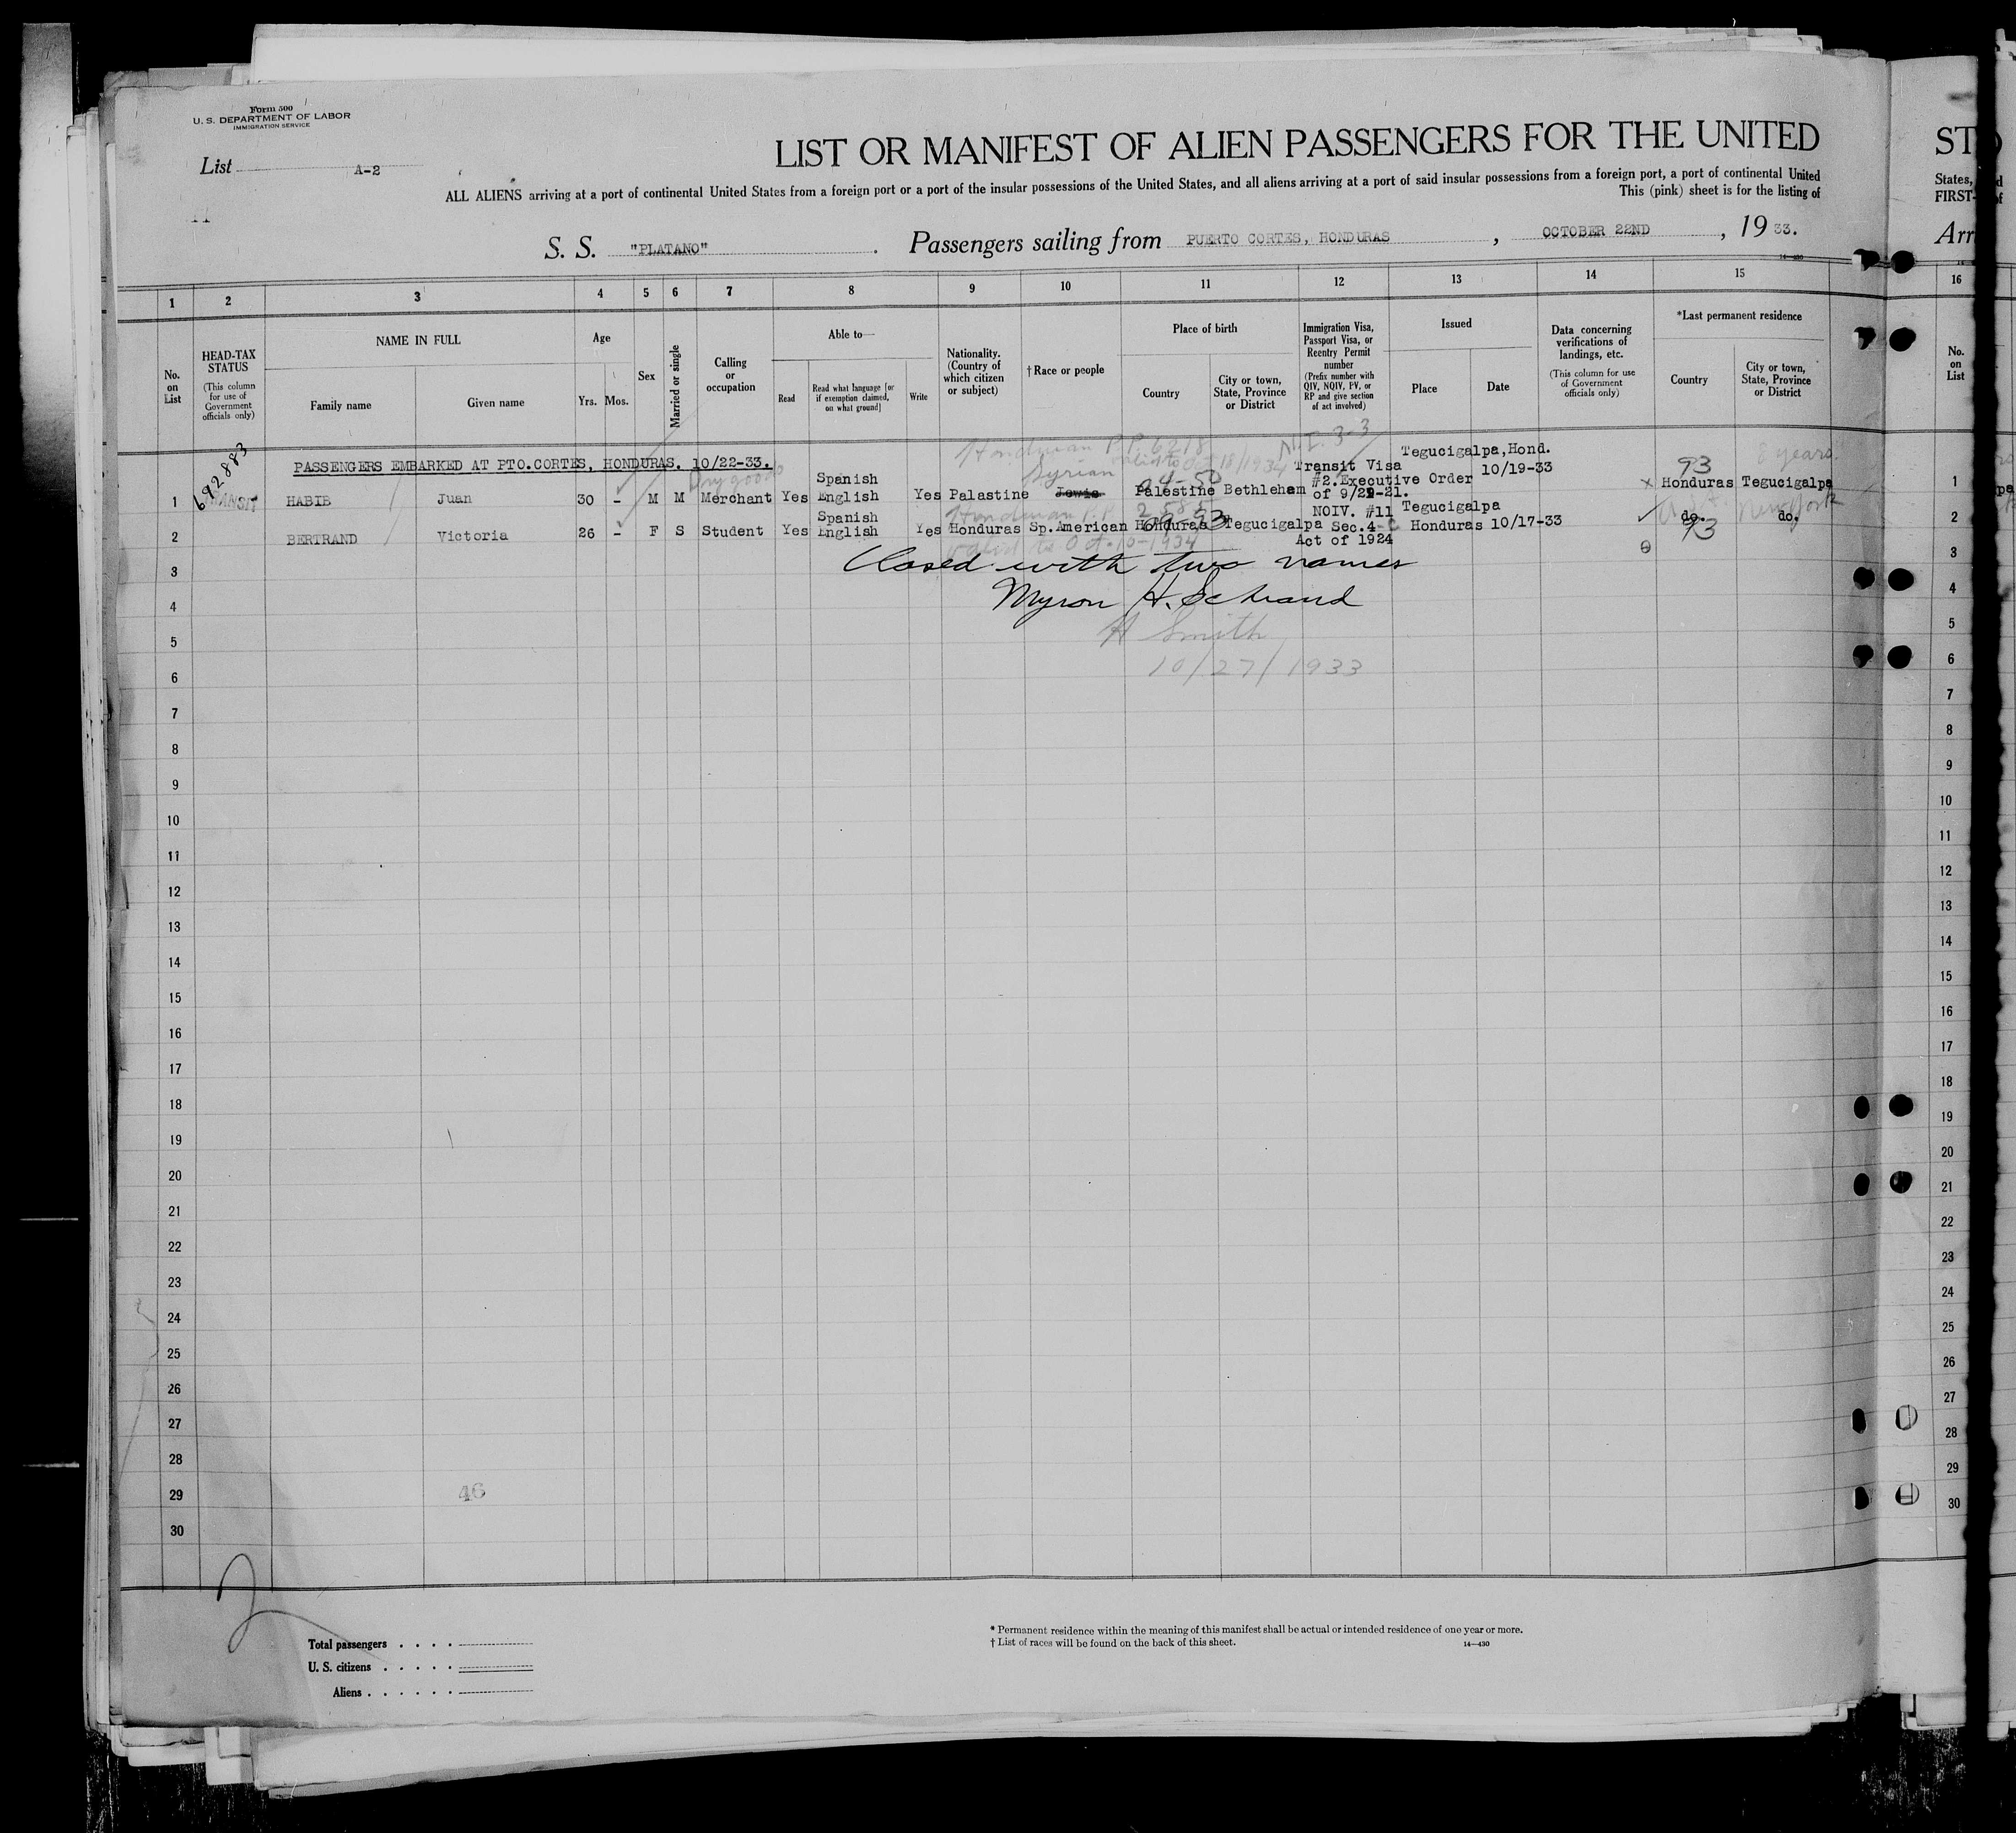 Form 500
U. S. DEPARTMENT OF LABOR
IMMIGRATION SERVICE
List A-2
LIST OR MANIFEST OF ALIEN PASSENGERS FOR THE UNITED
ALL ALIENS arriving at a port of continental United States from a foreign port or a port of the insular possessions of the United States, and all aliens arriving at a port of said insular possessions from a foreign port, a port of continental United
This (pink) sheet is for the listing of
S. S. "PLATANO" . Passengers sailing from PUERTO CORTES, HONDURAS , OCTOBER 22ND , 19 33.
14-430
1 2 3 4 5 6 7 8 9 10 11 12 13 14 15
No. on List
HEAD-TAX STATUS
(This column for use of Government officials only)
NAME IN FULL
Family name
Given name
Age
Yrs. Mos.
Sex
Married or single
Calling or occupation
Able to—
Read
Read what language [or if exemption claimed, on what ground]
Write
Nationality. (Country of which citizen or subject)
†Race or people
Place of birth
Country
City or town, State, Province or District
Immigration Visa, Passport Visa, or Reentry Permit number
(Prefix number with QIV, NQIV, PV, or RP and give section of act involved)
Issued
Place
Date
Data concerning verifications of landings, etc.
(This column for use of Government officials only)
*Last permanent residence
Country
City or town, State, Province or District
692883
Honduran P.P. 6218
N.I. 3-3
Tegucigalpa,Hond.
PASSENGERS EMBARKED AT PTO.CORTES, HONDURAS. 10/22-33.
Dry goods
Spanish
Syrian
Transit Visa 10/19-33
93
8 years
#2.Executive Order
TRANSIT
1 HABIB Juan 30 - M M Merchant Yes English Yes Palastine Jewis Palestine Bethlehem of 9/29-21. x Honduras Tegucigalpa
94-50
Honduran P.P. 258
Spanish
NOIV. #11 Tegucigalpa
New York
2 BERTRAND Victoria 26 - F S Student Yes English Yes Honduras Sp.American Honduras Tegucigalpa Sec.4-C Honduras 10/17-33 do. do.
93
Act of 1924
valid to Oct-10-1934
3 Closed with two names
4 Myron H. Schraud
5 H Smith
6 10/27/1933
7
8
9
10
11
12
13
14
15
16
17
18
19
20
21
22
23
24
25
26
27
28
29 46
30
2
Total passengers
U. S. citizens
Aliens
* Permanent residence within the meaning of this manifest shall be actual or intended residence of one year or more.
† List of races will be found on the back of this sheet.
14-430
ST
States,
FIRST-
Arr
16
No. on List
1
2
3
4
5
6
7
8
9
10
11
12
13
14
15
16
17
18
19
20
21
22
23
24
25
26
27
28
29
30